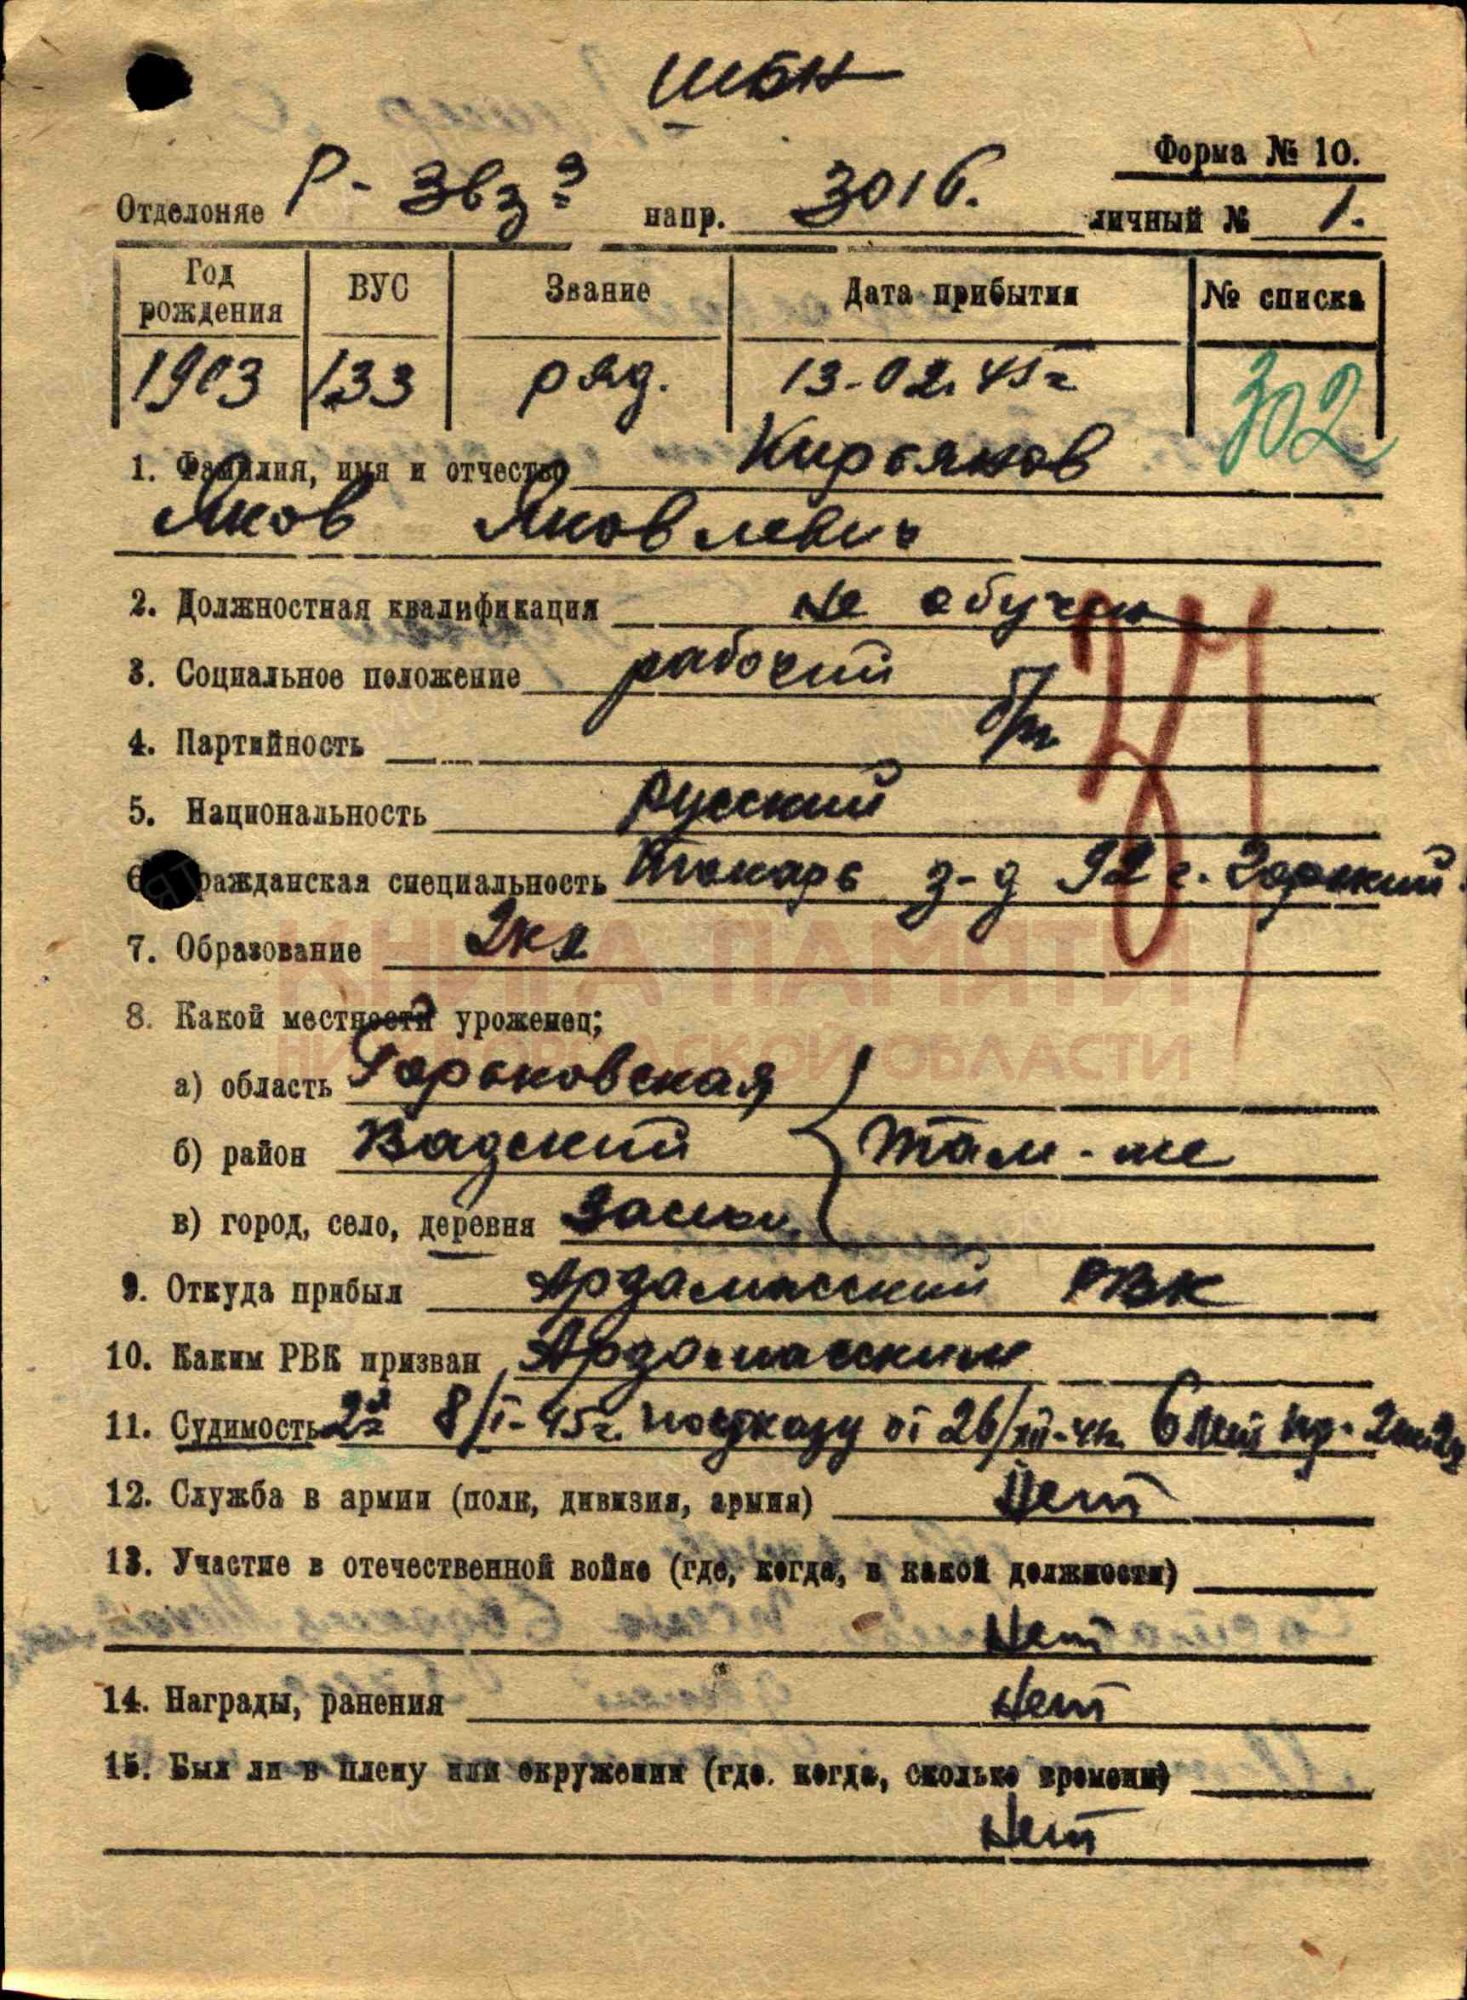 шбн
Форма № 10.
Отделоняе Р- 3вз 3 напр. 3016. личный № 1.
Год рождения ВУС Звание Дата прибытия № списка
1903 133 ряд. 13.02.45г 302
1. Фамилия, имя и отчество Кирьяков
Яков Яковлевич
2. Должностная квалификация не обучен
3. Социальное положение рабочий
4. Партийность б/п
5. Национальность русский
6. Гражданская специальность Токарь з-д 92 г. Горький
7. Образование 2кл
КНИГА ПАМЯТИ
8. Какой местности уроженец;
НИЖЕГОРОДСКОЙ ОБЛАСТИ
а) область Горьковская
б) район Вадский Там-же
в) город, село, деревня
9. Откуда прибыл Арзамасский РВК
10. Каким РВК призван Арзамасским
11. Судимость 8/I-45г. по указу от 26/XII-41г. 6 лет
12. Служба в армии (полк, дивизия, армия) Нет
13. Участие в отечественной войне (где, когда, в какой должности)
Нет
14. Награды, ранения Нет
15. Был ли в плену или окружении (где. когда, сколько времени)
Нет